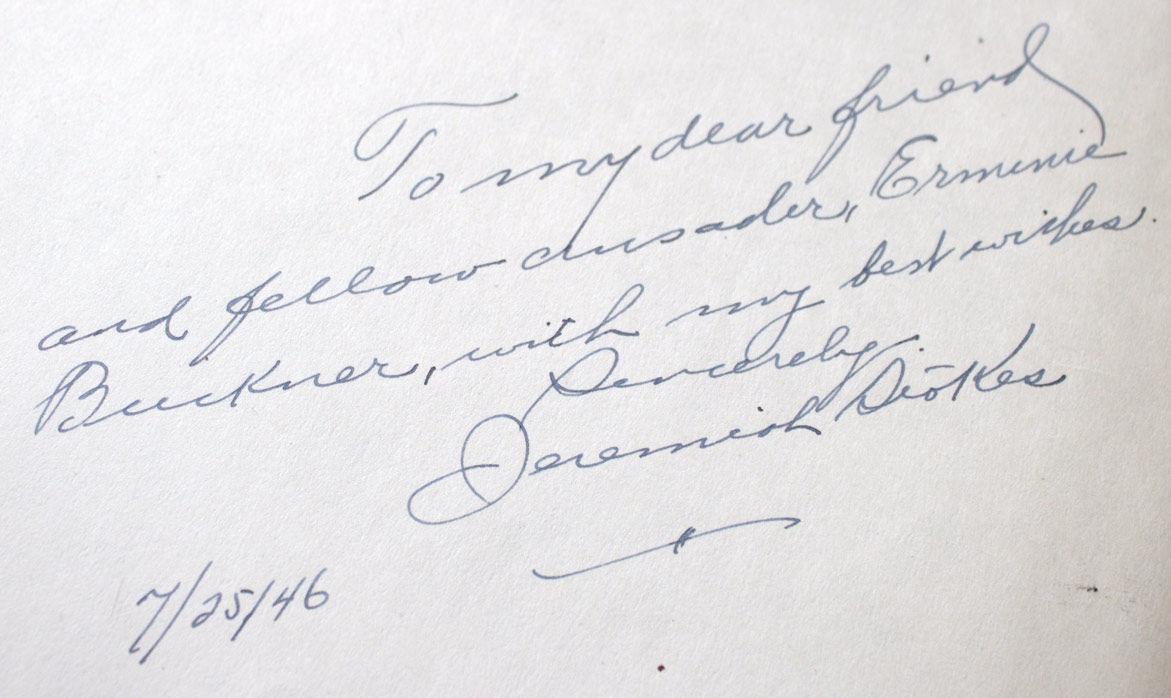 To my dear friend
and fellow crusader, Erminie
Buckner, with my best wishes.
Sincerely
Jeremiah Stokes
7/25/46